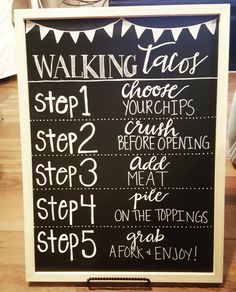 WALKING tacos
step 1 choose
YOUR CHIPS
step 2 crush
BEFORE OPENING
step 3 add
MEAT
step 4 pile
ON THE TOPPINGS
step 5 grab
A FORK & ENJOY!